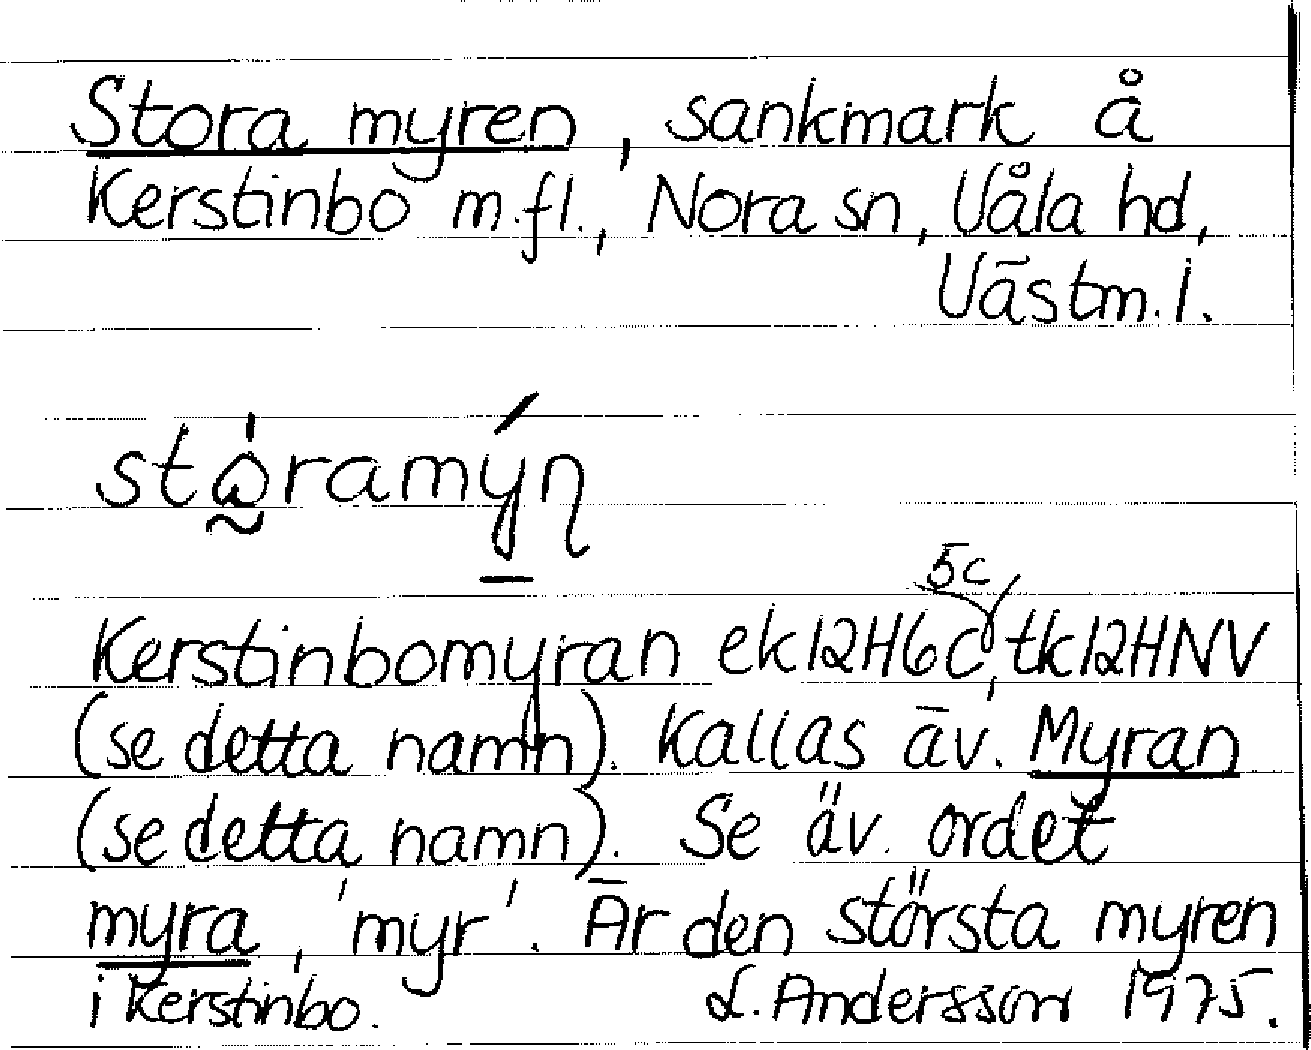 Stora myren, sankmark å
Kerstinbo m.fl., Nora sn, Våla hd,
Västm. l.
5c
Kerstinbomyran ek12H6c, tk12HNV
(se detta namn). Kallas äv. Myran
(se detta namn). Se äv. ordet
myra, 'myr'. Är den största myren
i Kerstinbo. L. Andersson 1975.